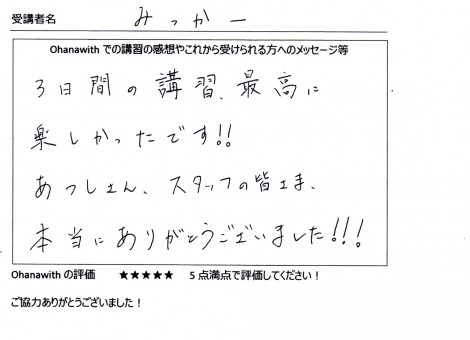 受講者名 みっかー
Ohanawith での講習の感想やこれから受けられる方へのメッセージ等
3日間の講習、最高に
楽しかったです!!
あつしさん、スタッフの皆さま、
本当にありがとうございました!!!
Ohanawith の評価 ★★★★★ 5点満点で評価してください！
ご協力ありがとうございました！